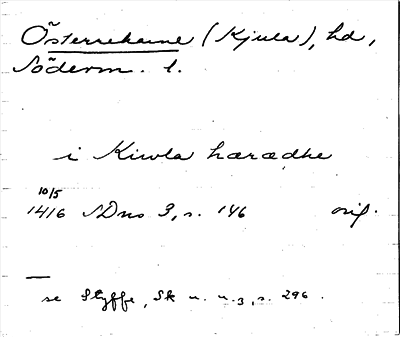 Österrekarne (Kjula), hd,
Söderm. l.
i Kiwla hærædhe
10/5
1416 SDns 3, s. 146 orig.
se Styffe, Sk u. u. 3, s. 296.